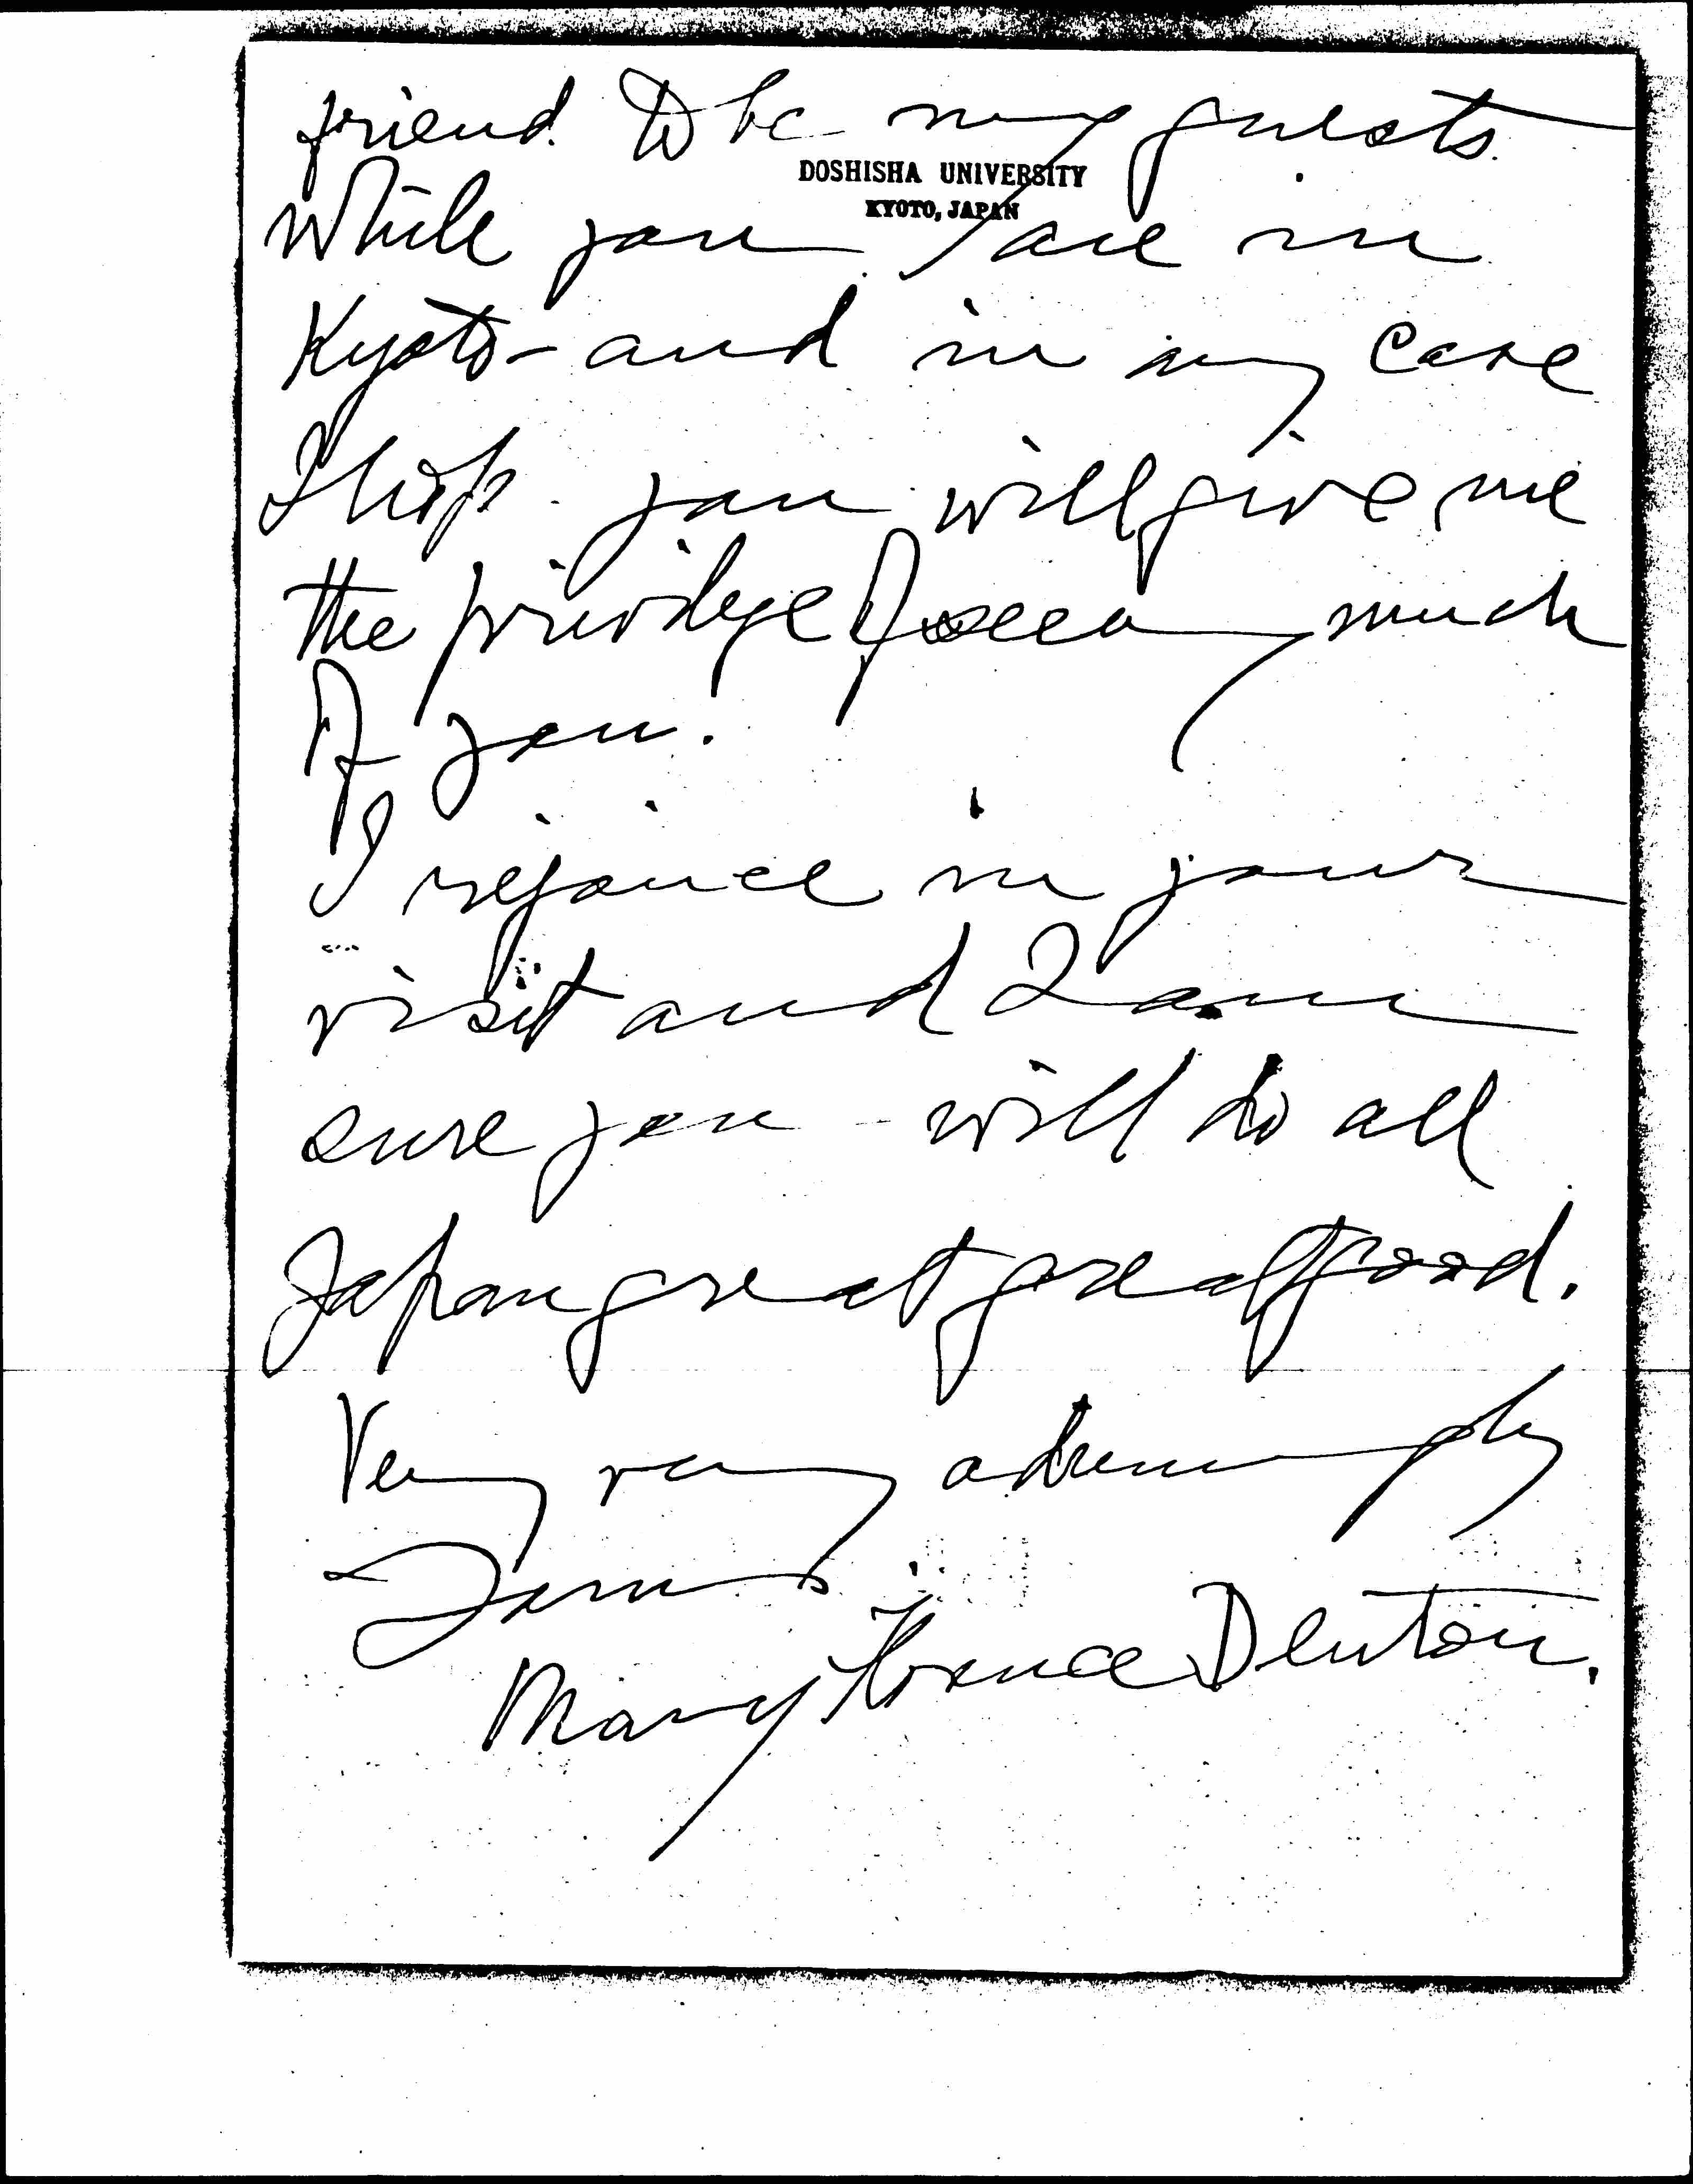 friend to be my guests
DOSHISHA UNIVERSITY
KYOTO, JAPAN
while you are in
Kyoto - and in any case
I hope you will give me
the privilege of seeing much
of you.
I rejoice in your
visit and I am
sure you will do all
Japan great great good.
Very very admiringly
Yours
Mary Florence Denton.